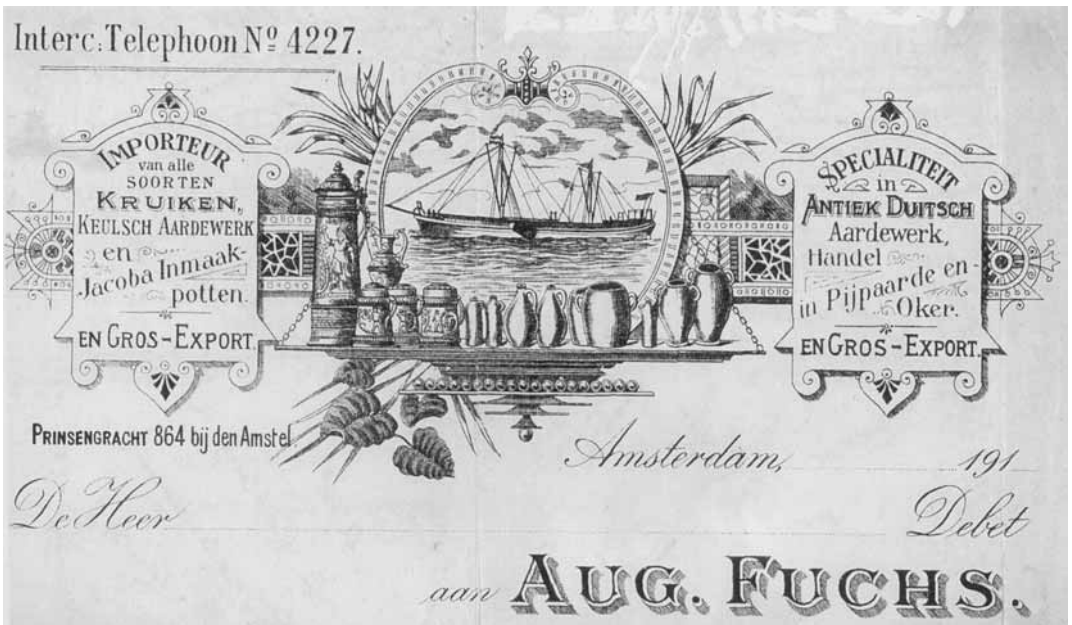 Interc: Telephoon Nº 4227.
IMPORTEUR
van alle
SOORTEN
KRUIKEN,
KEULSCH AARDEWERK
en
Jacoba Inmaak-
potten.
EN GROS-EXPORT.
SPECIALITEIT
in
ANTIEK DUITSCH
Aardewerk,
Handel
in Pijpaarde en-
Oker.
EN GROS-EXPORT.
PRINSENGRACHT 864 bij den Amstel
Amsterdam, 191
De Heer Debet
aan AUG. FUCHS.